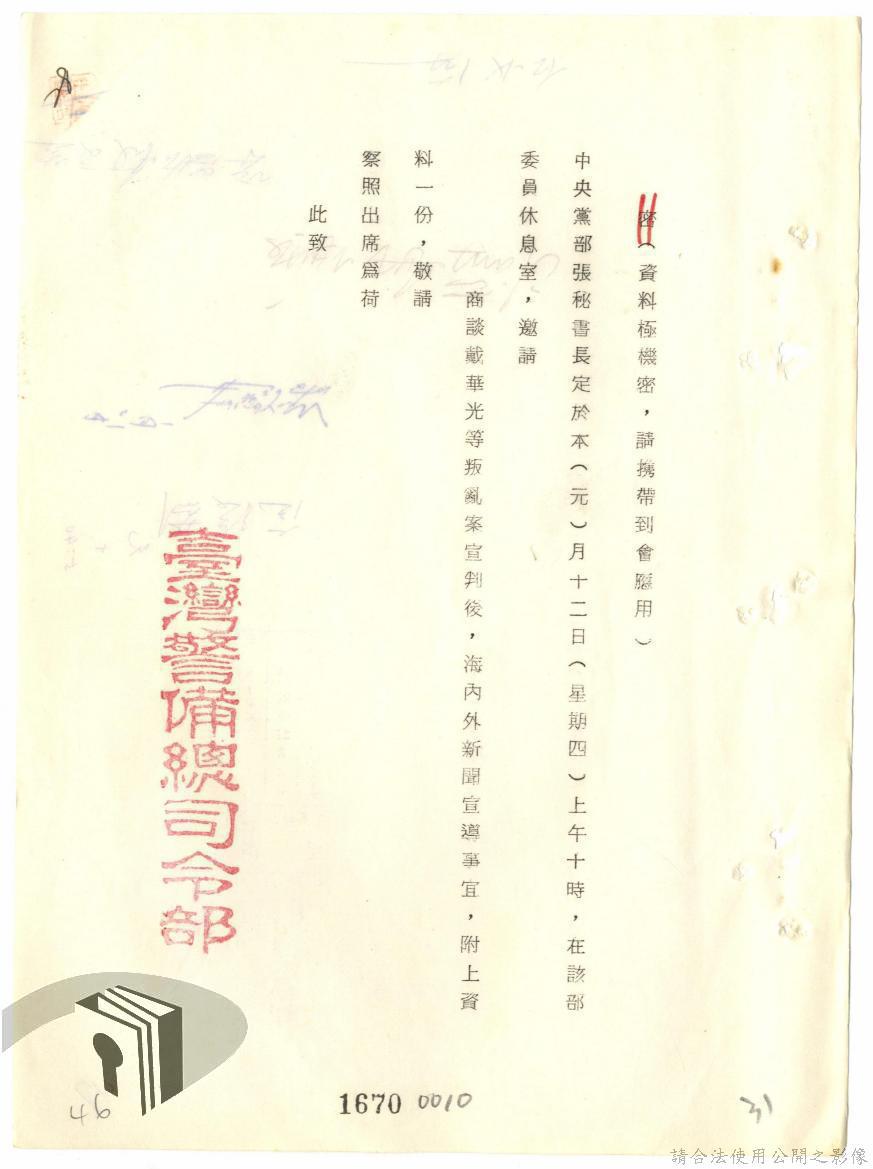 密（資料極機密，請携帶到會應用）
中央黨部張秘書長定於本（元）月十二日（星期四）上午十時，在該部
委員休息室，邀請
商談戴華光等叛亂案宣判後，海內外新聞宣導事宜，附上資
料一份，敬請
察照出席爲荷
此致
臺灣警備總司令部
46
1670 0010
31
請合法使用公開之影像